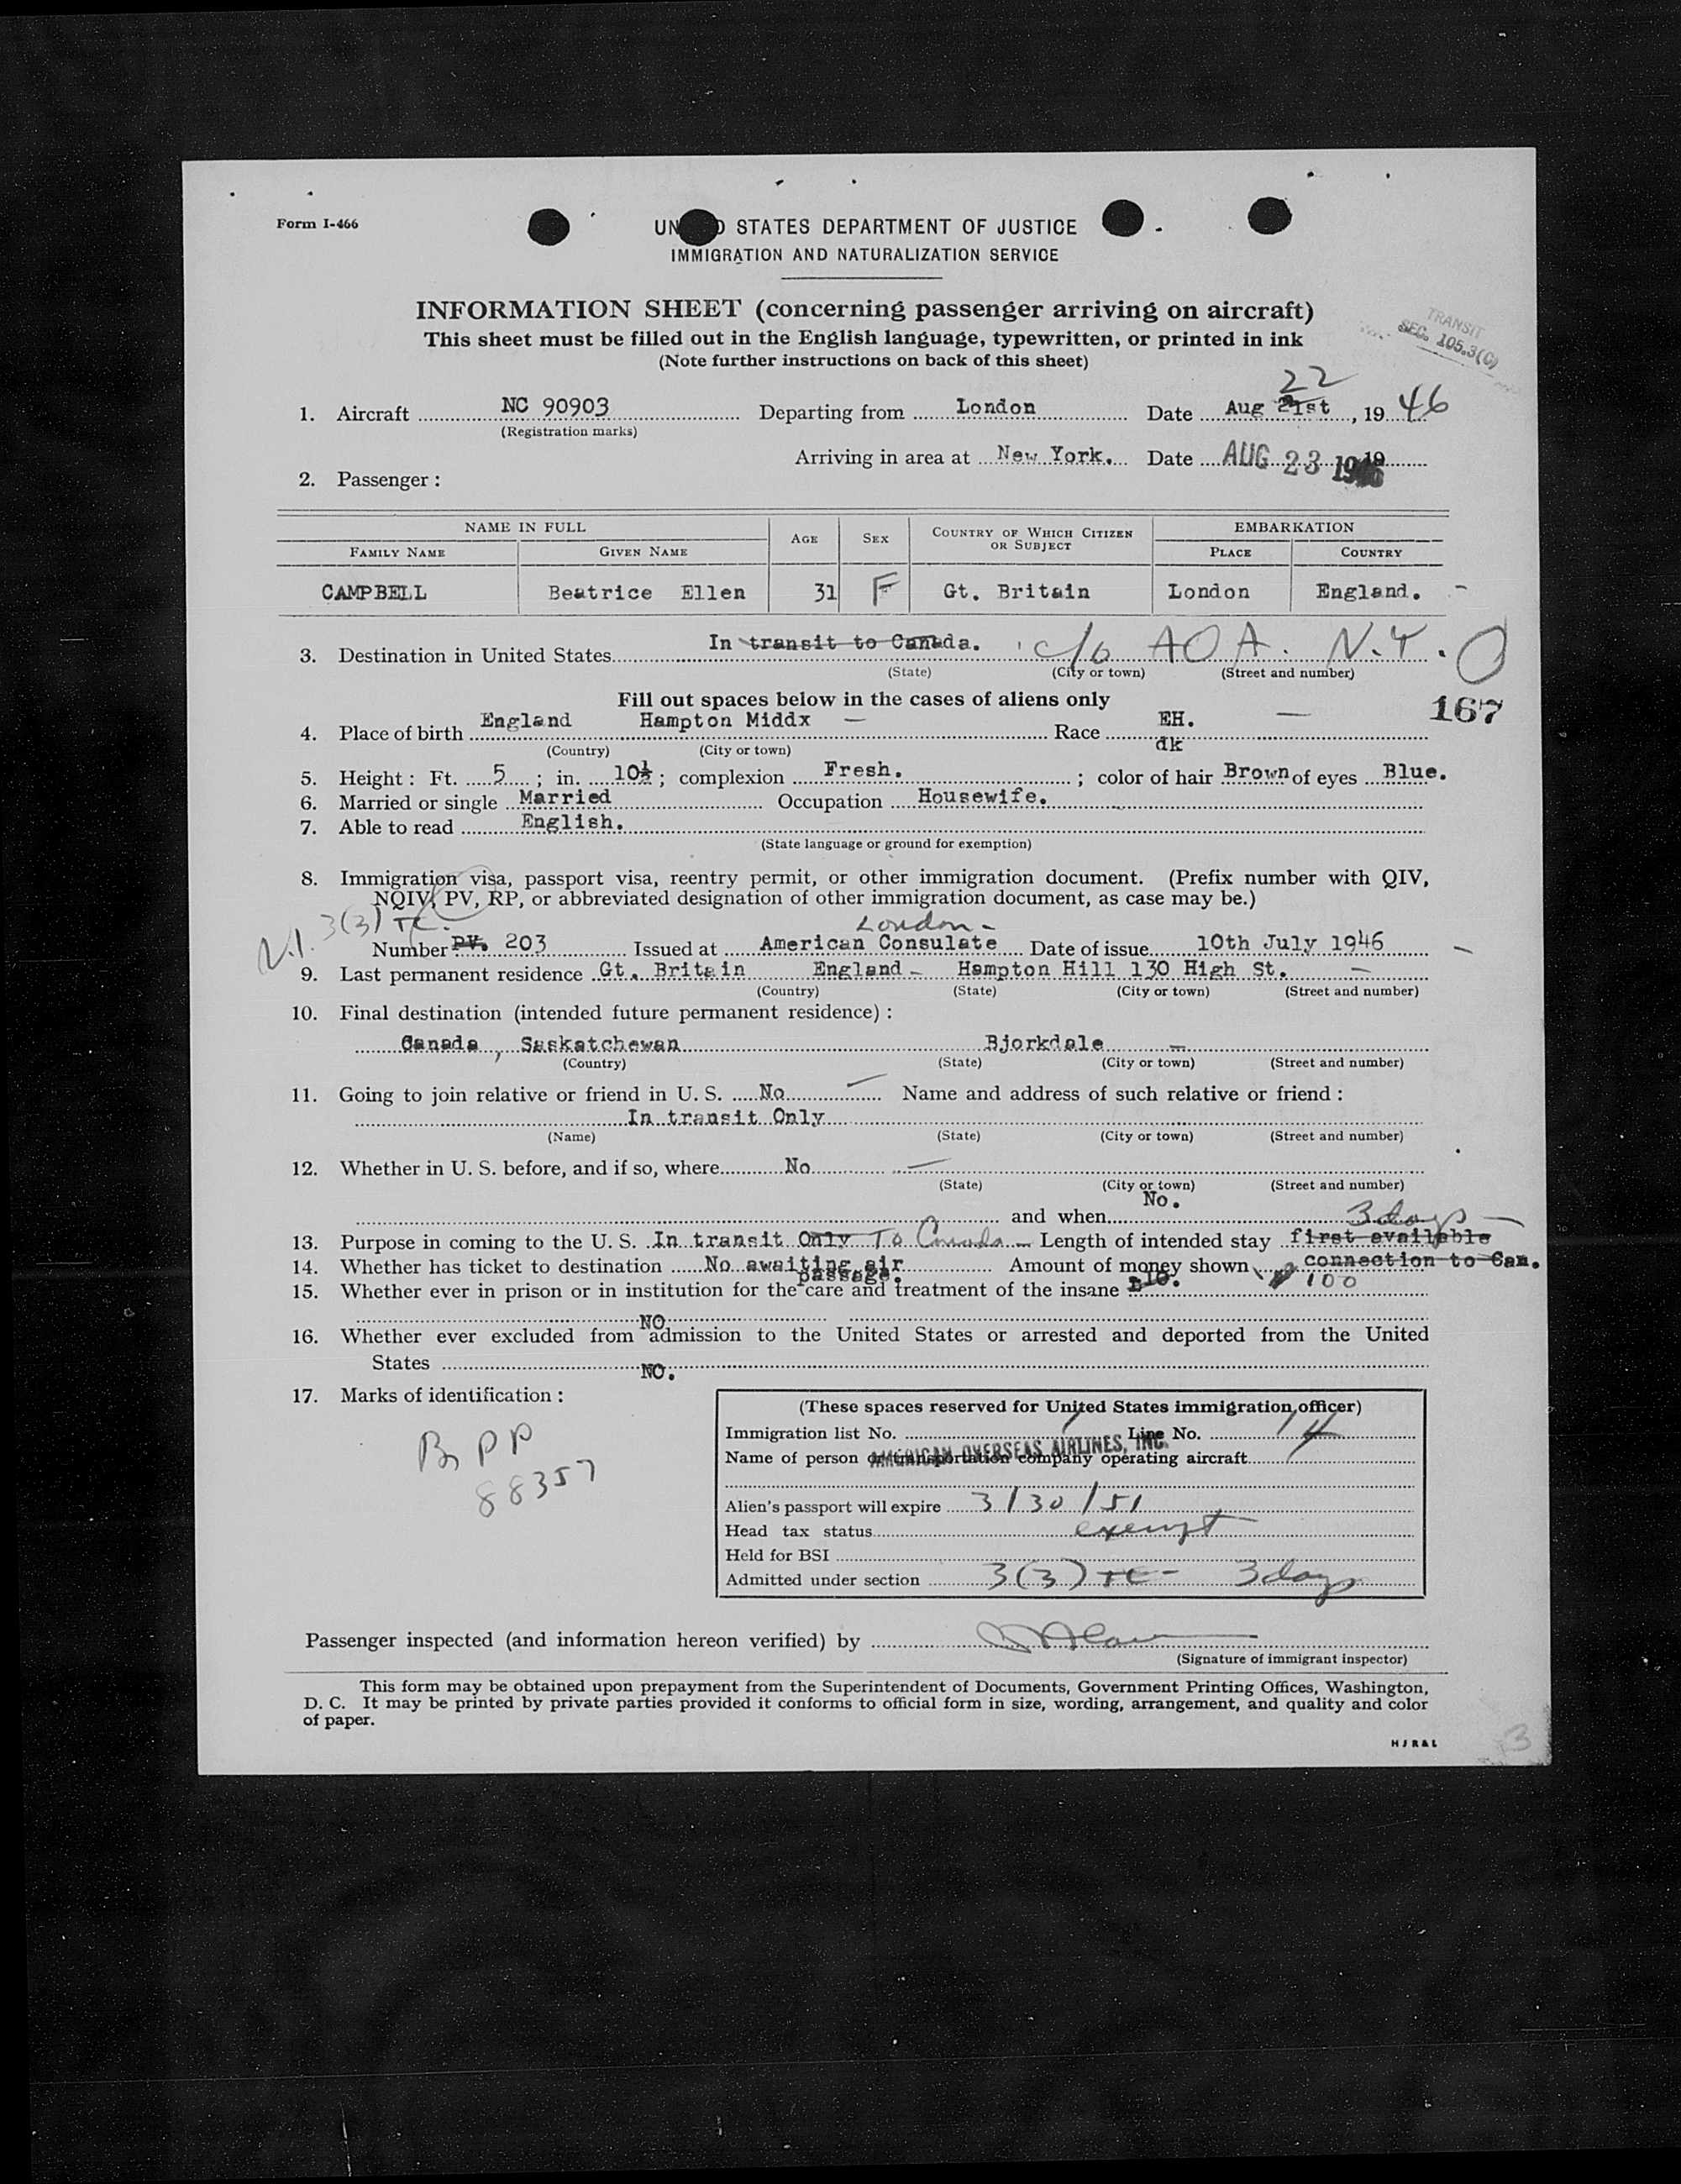 Form I-466
UN D STATES DEPARTMENT OF JUSTICE
IMMIGRATION AND NATURALIZATION SERVICE
INFORMATION SHEET (concerning passenger arriving on aircraft)
This sheet must be filled out in the English language, typewritten, or printed in ink
(Note further instructions on back of this sheet)
TRANSIT
SEC. 105.3(C)
22
1. Aircraft NC 90903 Departing from London Date Aug 21st, 19 46
(Registration marks)
Arriving in area at New York. Date AUG 23 1946 19
2. Passenger:
NAME IN FULL AGE SEX COUNTRY OF WHICH CITIZEN OR SUBJECT EMBARKATION
FAMILY NAME GIVEN NAME PLACE COUNTRY
CAMPBELL Beatrice Ellen 31 F Gt. Britain London England. -
3. Destination in United States In transit to Canada. c/o AOA. N.Y.
(State) (City or town) (Street and number)
Fill out spaces below in the cases of aliens only
167
4. Place of birth England Hampton Middx — Race EH. —
dk
(Country) (City or town)
5. Height: Ft. 5; in. 10½; complexion Fresh.; color of hair Brown of eyes Blue.
6. Married or single Married Occupation Housewife.
7. Able to read English.
(State language or ground for exemption)
8. Immigration visa, passport visa, reentry permit, or other immigration document. (Prefix number with QIV,
NQIV, PV, RP, or abbreviated designation of other immigration document, as case may be.)
N.I. 3(3) TC. London -
Number PV. 203 Issued at American Consulate Date of issue 10th July 1946 -
9. Last permanent residence Gt. Britain England - Hampton Hill 130 High St. —
(Country) (State) (City or town) (Street and number)
10. Final destination (intended future permanent residence):
Canada, Saskatchewan Bjorkdale —
(Country) (State) (City or town) (Street and number)
11. Going to join relative or friend in U. S. No — Name and address of such relative or friend:
In transit Only
(Name) (State) (City or town) (Street and number)
12. Whether in U. S. before, and if so, where No —
(State) (City or town) (Street and number)
and when No. 3 days —
13. Purpose in coming to the U. S. In transit Only To Canada — Length of intended stay first available
14. Whether has ticket to destination No awaiting air passage. Amount of money shown connection to Can.
15. Whether ever in prison or in institution for the care and treatment of the insane £10. 100
NO
16. Whether ever excluded from admission to the United States or arrested and deported from the United
States NO.
17. Marks of identification:
Br PP
88357
(These spaces reserved for United States immigration officer)
Immigration list No. 1 Line No. 14
AMERICAN OVERSEAS AIRLINES, INC.
Name of person or transportation company operating aircraft
Alien's passport will expire 3/30/51
Head tax status exempt
Held for BSI
Admitted under section 3(3) TC - 3 days
Passenger inspected (and information hereon verified) by
(Signature of immigrant inspector)
This form may be obtained upon prepayment from the Superintendent of Documents, Government Printing Offices, Washington,
D. C. It may be printed by private parties provided it conforms to official form in size, wording, arrangement, and quality and color
of paper.
HJR&L
3